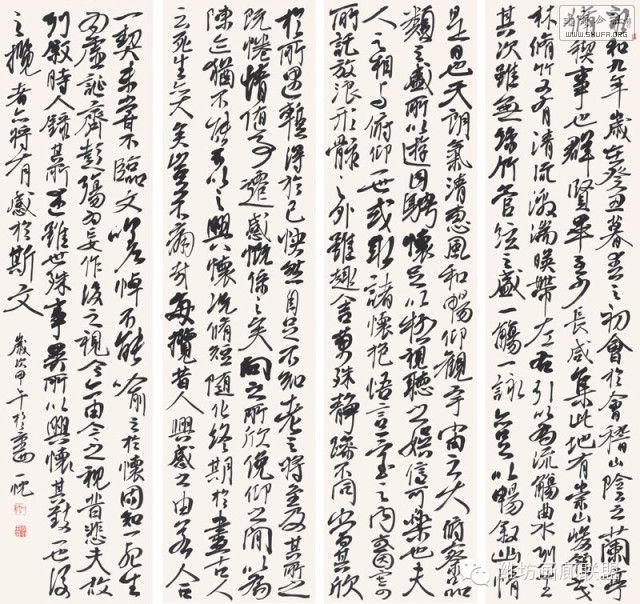 永和九年歲在癸丑暮春之初會於會稽山陰之蘭亭
脩禊事也群賢畢至少長咸集此地有崇山峻領茂
林脩竹又有清流激湍暎帶左右引以為流觴曲水列坐
其次雖無絲竹管弦之盛一觴一詠亦足以暢叙幽情
是日也天朗氣清惠風和暢仰觀宇宙之大俯察品
類之盛所以遊目騁懷足以極視聽之娛信可樂也夫
人之相與俯仰一世或取諸懷抱悟言一室之內或因寄
所託放浪形骸之外雖趣舍萬殊靜躁不同當其欣
於所遇暫得於己快然自足不知老之將至及其所之
既惓情隨事遷感慨係之矣向之所欣俛仰之間以為
陳迹猶不能不以之興懷況脩短隨化終期於盡古人
云死生亦大矣豈不痛哉每攬昔人興感之由若合
一契未嘗不臨文嗟悼不能喻之於懷固知一死生
為虛誕齊彭殤為妄作後之視今亦由今之視昔悲夫故
列叙時人錄其所述雖世殊事異所以興懷其致一也後
之攬者亦將有感於斯文
歲次甲午
WWW.SHUFA.ORG
潍坊画廊联盟